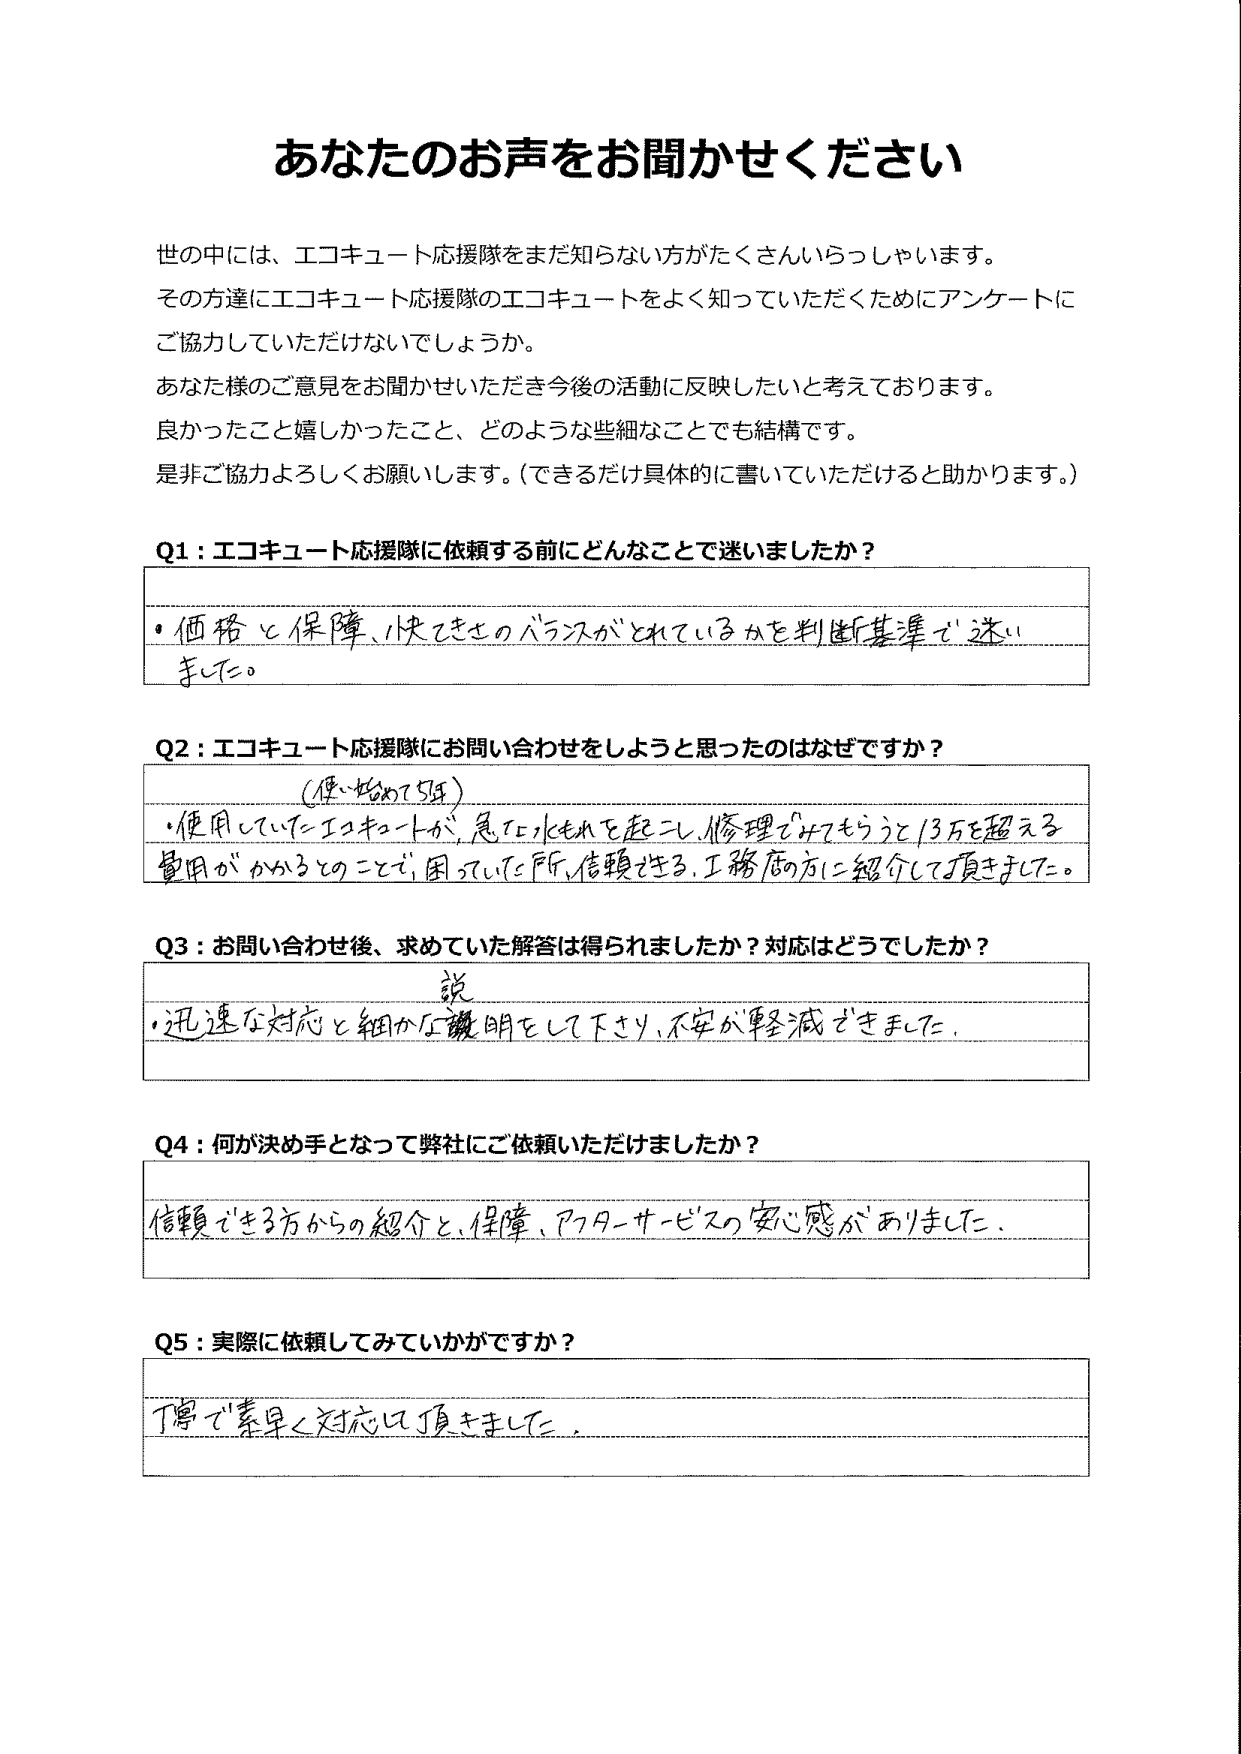 あなたのお声をお聞かせください
世の中には、エコキュート応援隊をまだ知らない方がたくさんいらっしゃいます。
その方達にエコキュート応援隊のエコキュートをよく知っていただくためにアンケートに
ご協力していただけないでしょうか。
あなた様のご意見をお聞かせいただき今後の活動に反映したいと考えております。
良かったこと嬉しかったこと、どのような些細なことでも結構です。
是非ご協力よろしくお願いします。（できるだけ具体的に書いていただけると助かります。）
Q1：エコキュート応援隊に依頼する前にどんなことで迷いましたか？
・価格と保障、快てきさのバランスがとれているかを判断基準で迷い
ました。
Q2：エコキュート応援隊にお問い合わせをしようと思ったのはなぜですか？
（使い始めて5年）
・使用していたエコキュートが、急な水もれを起こし、修理でみてもらうと13万を超える
費用がかかるとのことで、困っていた所、信頼できる、工務店の方に紹介して頂きました。
Q3：お問い合わせ後、求めていた解答は得られましたか？対応はどうでしたか？
説
・迅速な対応と細かな明をして下さり、不安が軽減できました.
Q4：何が決め手となって弊社にご依頼いただけましたか？
信頼できる方からの紹介と、保障、アフターサービスの安心感がありました.
Q5：実際に依頼してみていかがですか？
丁寧で素早く対応して頂きました.